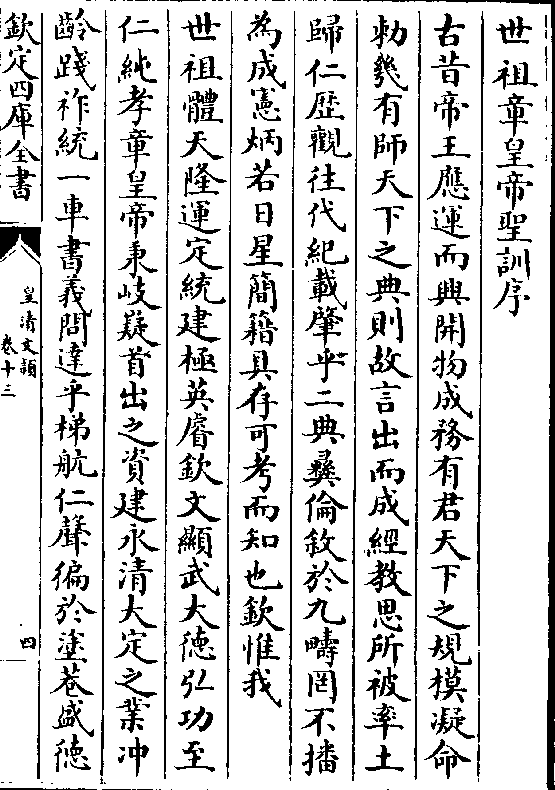 世祖章皇帝聖訓序
古昔帝王應運而興開物成務有君天下之規模凝命
勅幾有師天下之典則故言出而成經教思所被率土
歸仁歷觀往代紀載肇乎二典彞倫敘於九疇罔不播
為成憲炳若日星簡籍具存可考而知也欽惟我
世祖體天隆運定統建極英睿欽文顯武大德弘功至
仁純孝章皇帝秉岐嶷首出之資建永清大定之業冲
齡踐祚統一車書義問達乎梯航仁聲徧於塗巷盛德
欽定四庫全書
皇清文穎
卷十三
四